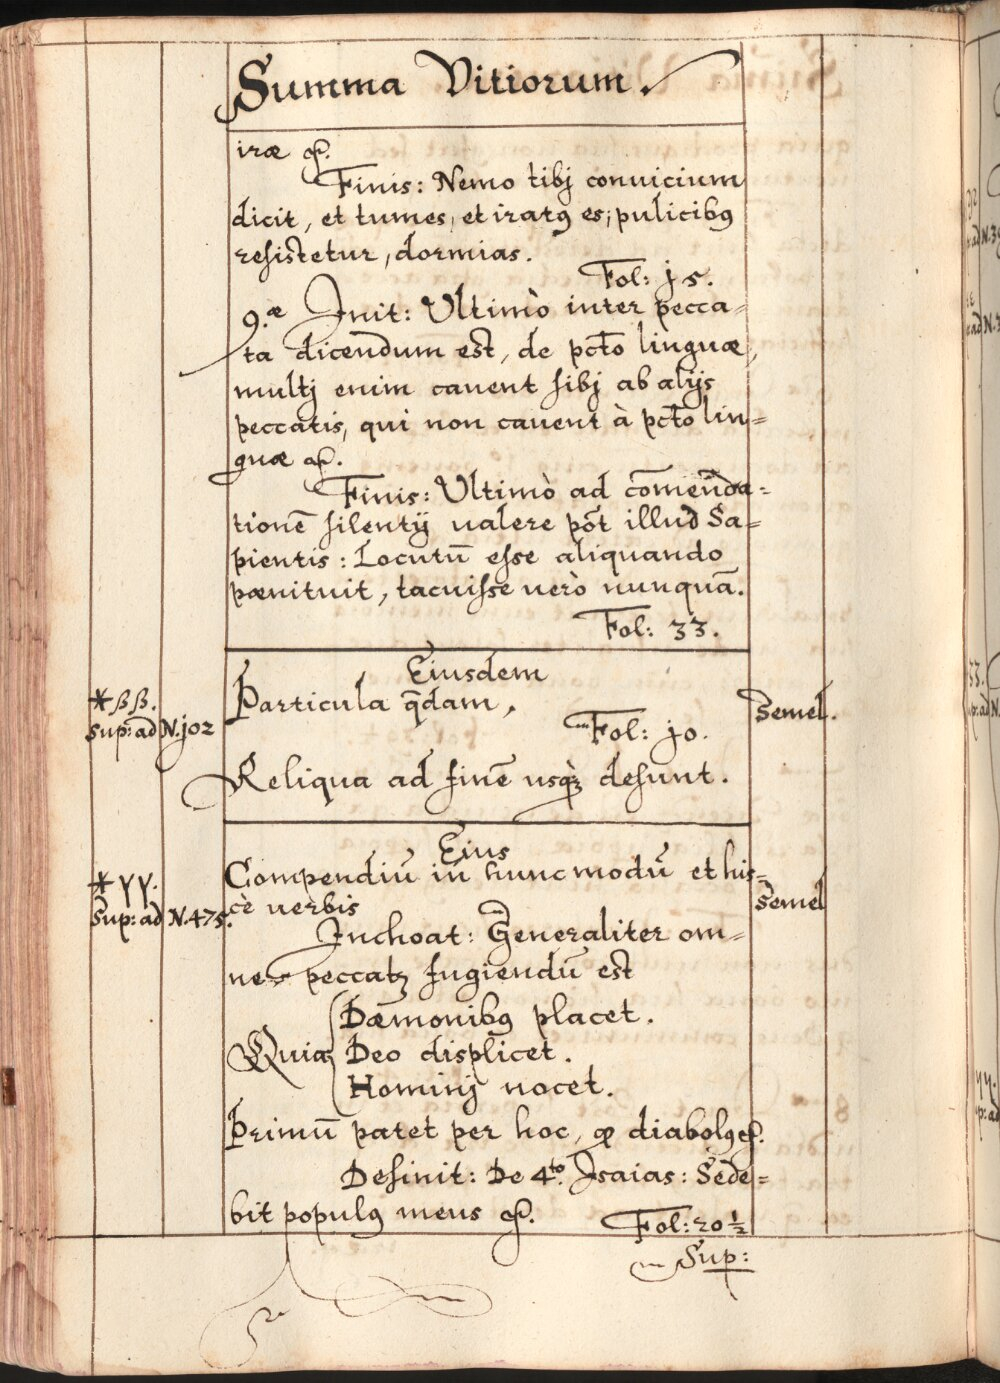 Summa Vitiorum.
iræ &c.
Finis: Nemo tibj conuicium
dicit, et tumes, et iratꝰ es; pulicibꝰ
resistetur, dormias.
Fol: j5.
9.æ Init: Ultimò inter pecca=
ta dicendum est, de pcto linguæ,
multj enim cauent sibj ab alijs
peccatis, qui non cauent à pcto lin=
guæ &c.
Finis: Ultimò ad com̄enda=
tionē silentij ualere pōt illud Sa=
pientis: Locutū esse aliquando
pænituit, tacuisse uerò nunquā.
Fol: 33.
Eiusdem
*ββ. Particula q̄dam, semel.
sup: ad N. j02
Fol: j0.
Reliqua ad finē usqꝫ desunt.
Eius
*γγ. Compendiū in hunc modū et his=
Sup: ad N. 475. cè uerbis semel
Inchoat: Generaliter om=
ne peccatꝫ fugiendū est
Dæmonibꝰ placet.
Quia Deo displicet.
Hominj nocet.
Primū patet per hoc, qꝫ diabolꝰ &c.
Definit: De 4to. Isaias: Sede=
bit populꝰ meus &c.
Fol: 20 ½
Sup: